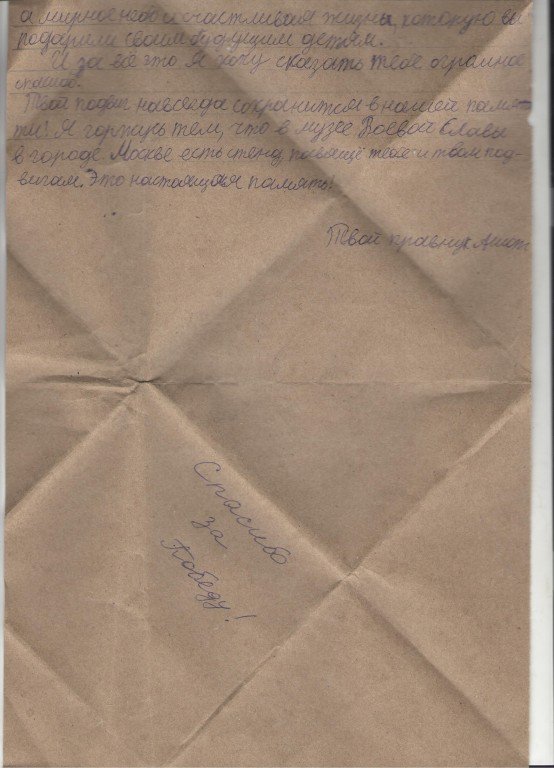 а мирное небо и счастливая жизнь, которую вы
подарили своим будущим детям.
И за всё это я хочу сказать тебе огромное
спасибо.
Твой подвиг навсегда сохранится в нашей памя-
ти! Я горжусь тем, что в музее Боевой Славы
в городе Москве есть стенд, посвящё тебе и твоим под-
вигам. Это настоящая память!
Твой правнук
Спасибо
за
Победу!